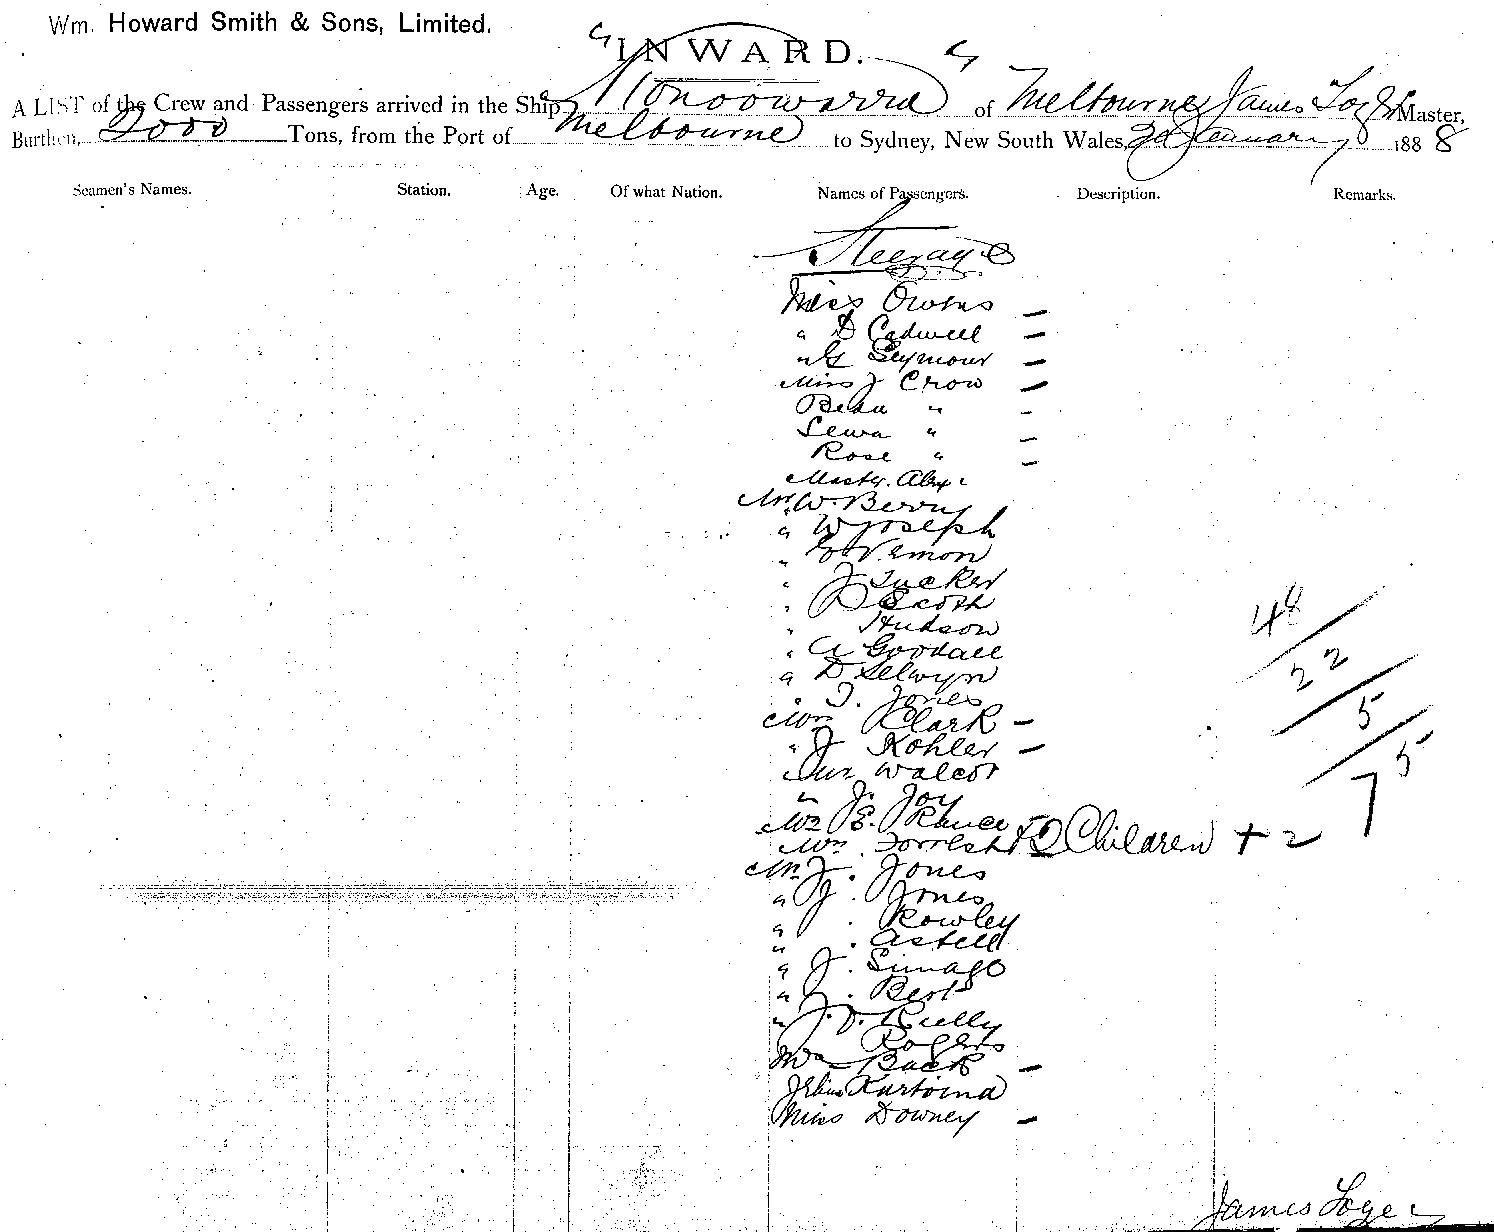 Wm. Howard Smith & Sons, Limited.
" INWARD. "
A LIST of the Crew and Passengers arrived in the Ship Konoowarra of Melbourne, James Master,
Burthen, 2000 Tons, from the Port of Melbourne to Sydney, New South Wales, January 1888
Seamen's Names. Station. Age. Of what Nation. Names of Passengers. Description. Remarks.
Steerage
Miss Owens –
" D Cadwell –
" G Seymour –
Miss J Crow –
" –
" –
Rose " –
Master. Alex "
Mr. W. Berry
" W Joseph
" Vernon
" J Tucker
" D Scott
" Hudson
" A Goodall
" D Selwyn
" T. Jones
Mrs Clark –
" J Kohler –
Mr Walcot
" J. Joy
E. Rance
Mrs. Forrest + 2 Children + 2
Mr J. Jones
" J. Jones
" . Rowley
" . Astell
" J.
" J.
" J. J. Reilly
Rogers
Back –
Miss Downey –
48
22
5
75
James